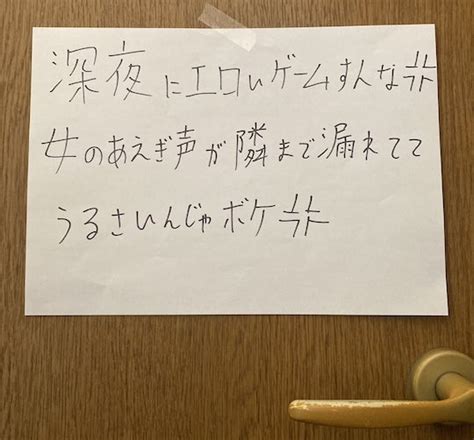 深夜にエロいゲームすんな💢
女のあえぎ声が隣まで漏れてて
うるさいんじゃボケ💢